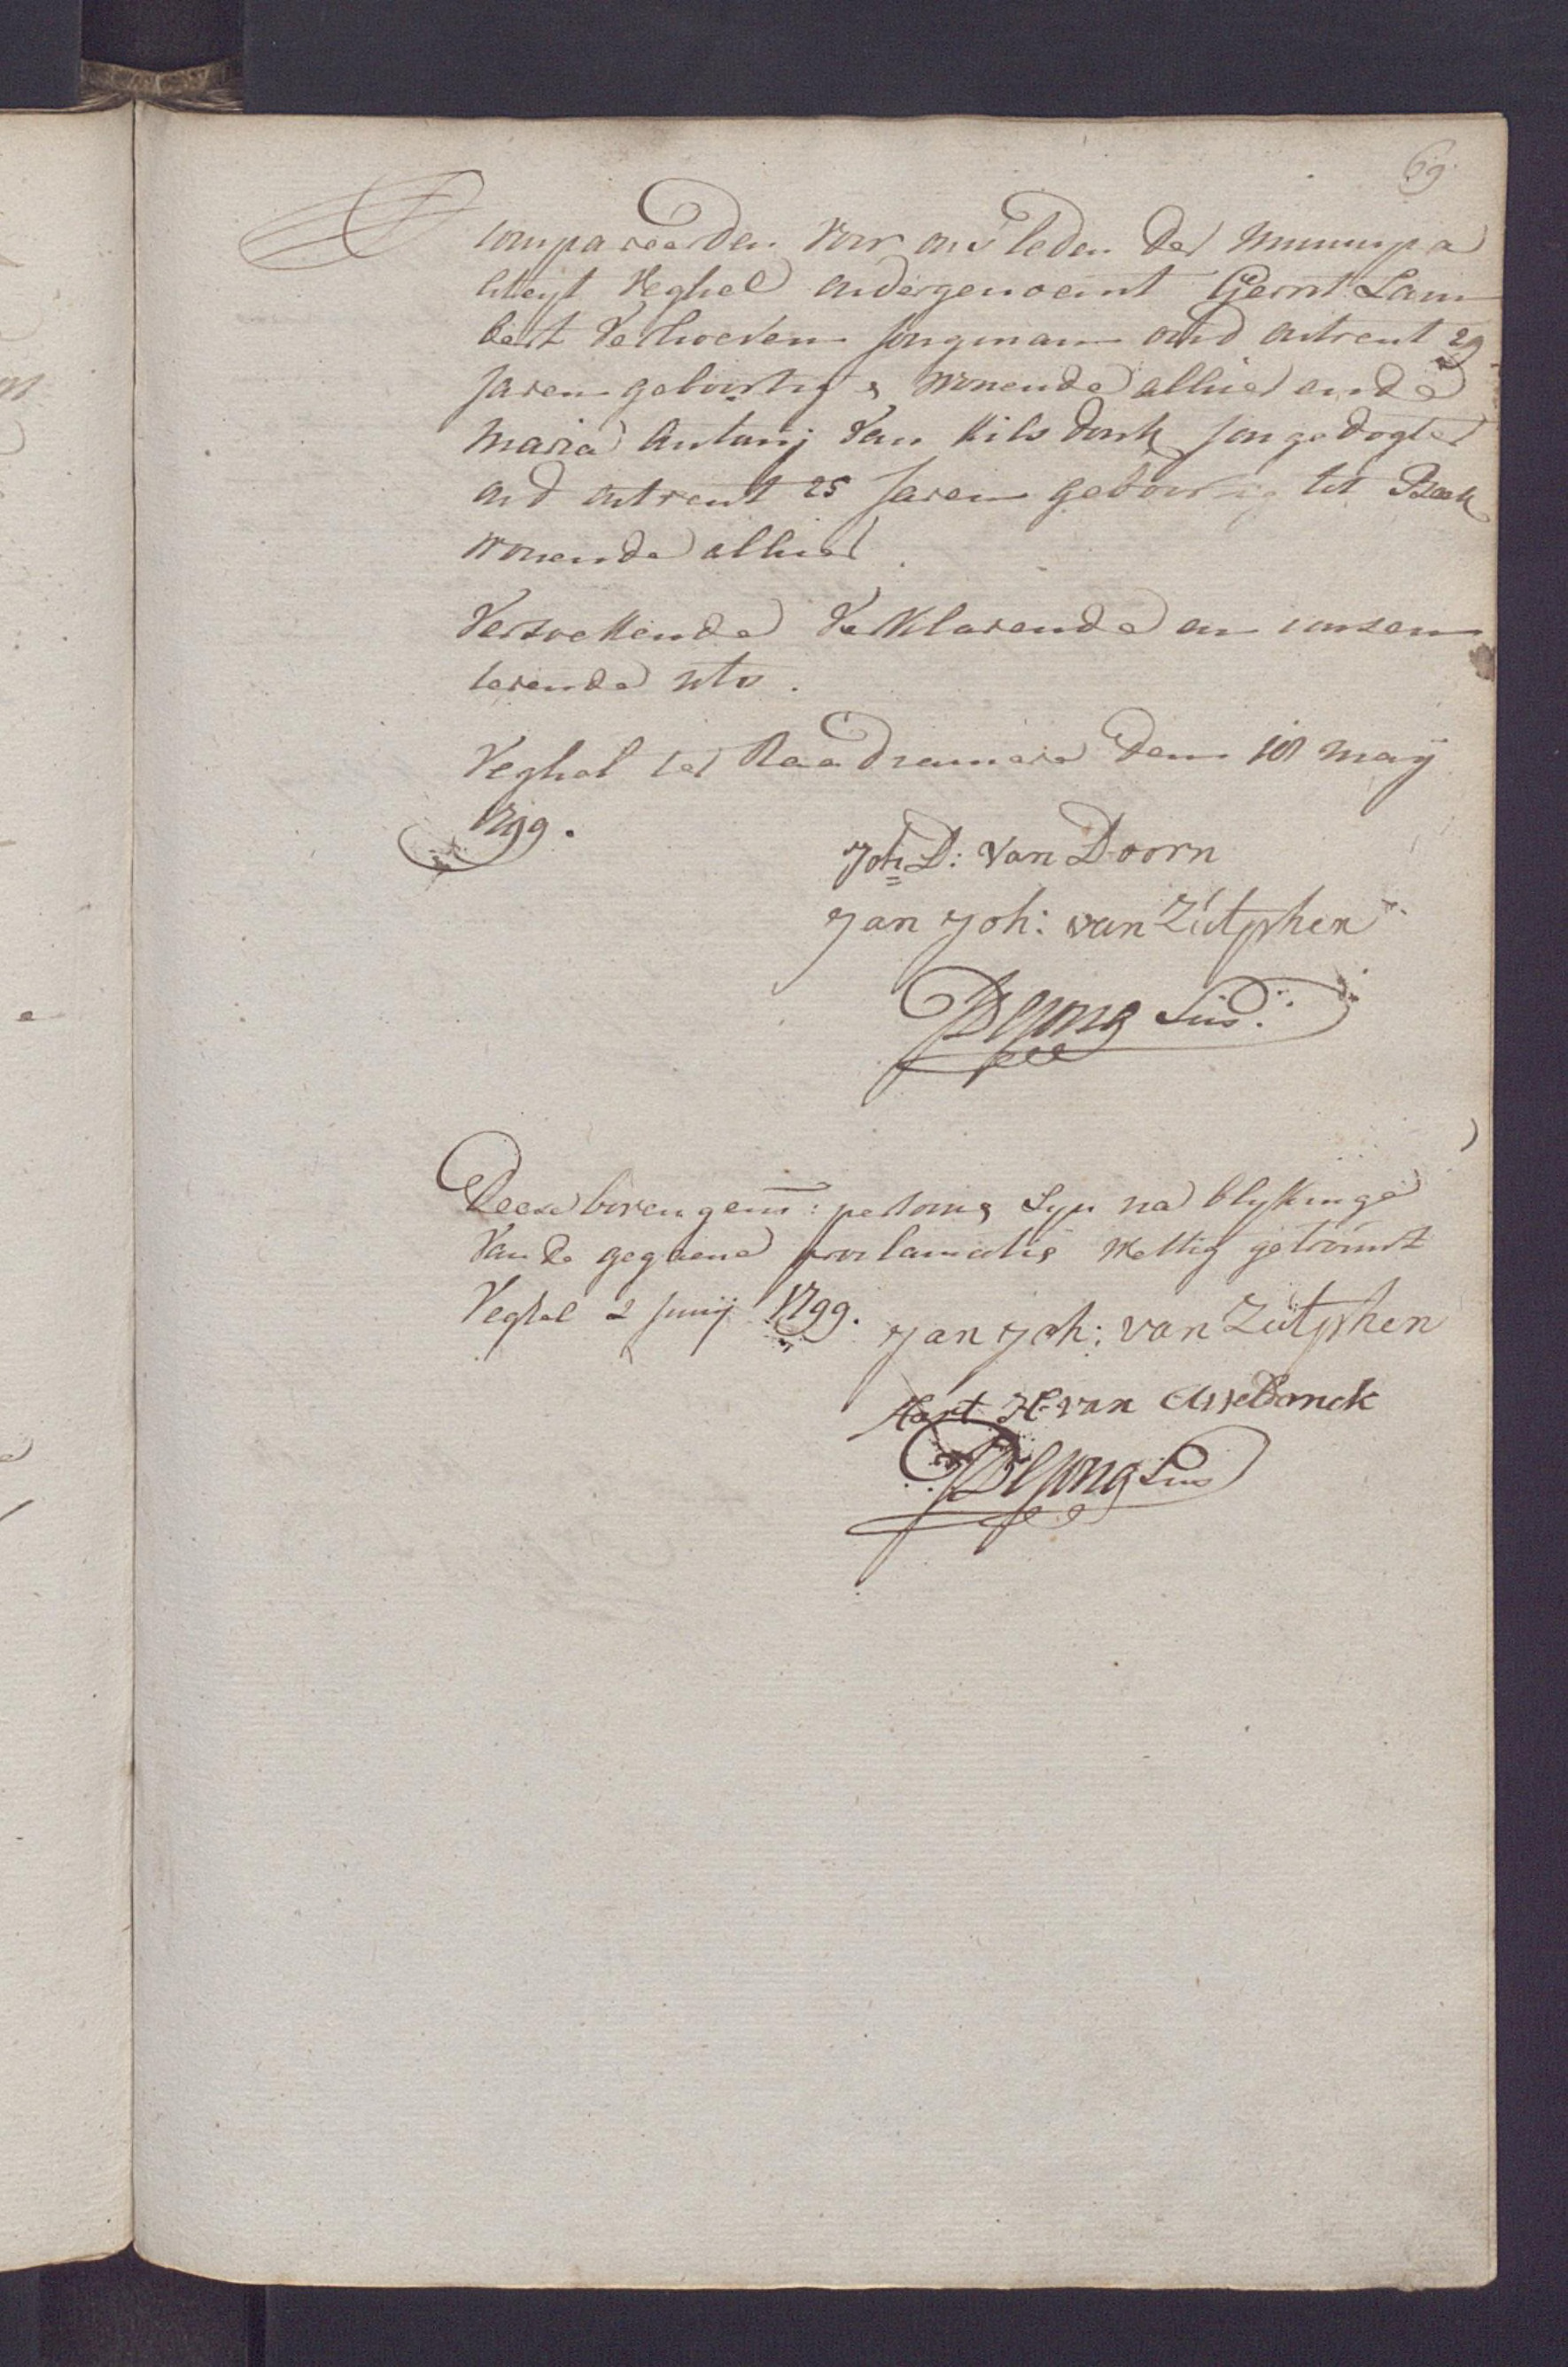 69
Compareerden voor ons leden der municipa
liteyt Veghel ondergenoemt Gerrit Lam
bert Verhoeven jongman oud ontrent 29
jaren geboortig & wonende alhier ende
Maria Antonij van Kilsdonk jongedogter
oud ontrent 25 jaren geboortig tot Beek
wonende alhier.
Versoekende verklarende en consen
terende ut s.
Veghel ter Raadcamere den 18 maij
1799.
Joh D: van Doorn
Jan Joh: van Zutphen
De Jong Secs.
Deese bovengem: persoons syn na blykinge
van de gegaene proclamatie wettig getrouwt
Veghel 2 Junij 1799.
Jan Joh: van Zutphen
H: van Asseldonck
De Jong Secs